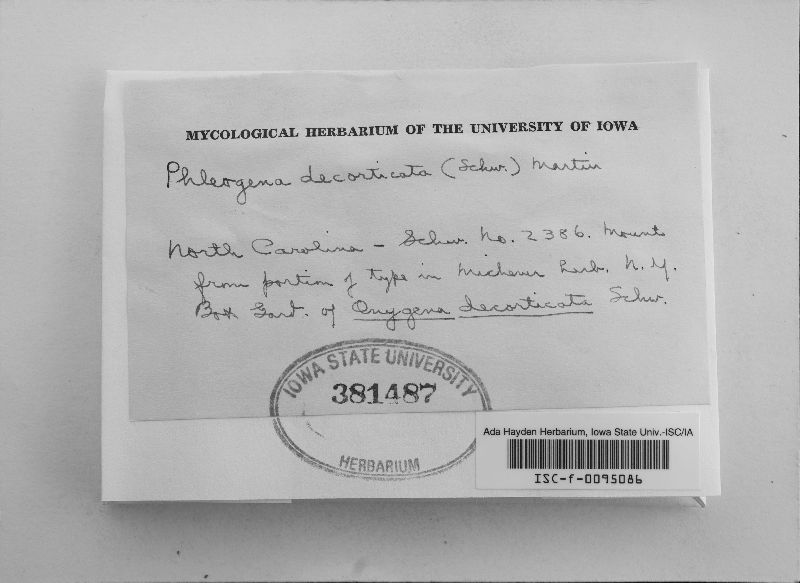 MYCOLOGICAL HERBARIUM OF THE UNIVERSITY OF IOWA
Phleogena decorticata (Schw.) Martin
North Carolina - Schw. No. 2386. Mount
from portion of type in Michener herb. N.Y.
Bot Gard. of Onygena decorticata Schw.
IOWA STATE UNIVERSITY
381487
HERBARIUM
Ada Hayden Herbarium, Iowa State Univ.-ISC/IA
ISC-f-0095086